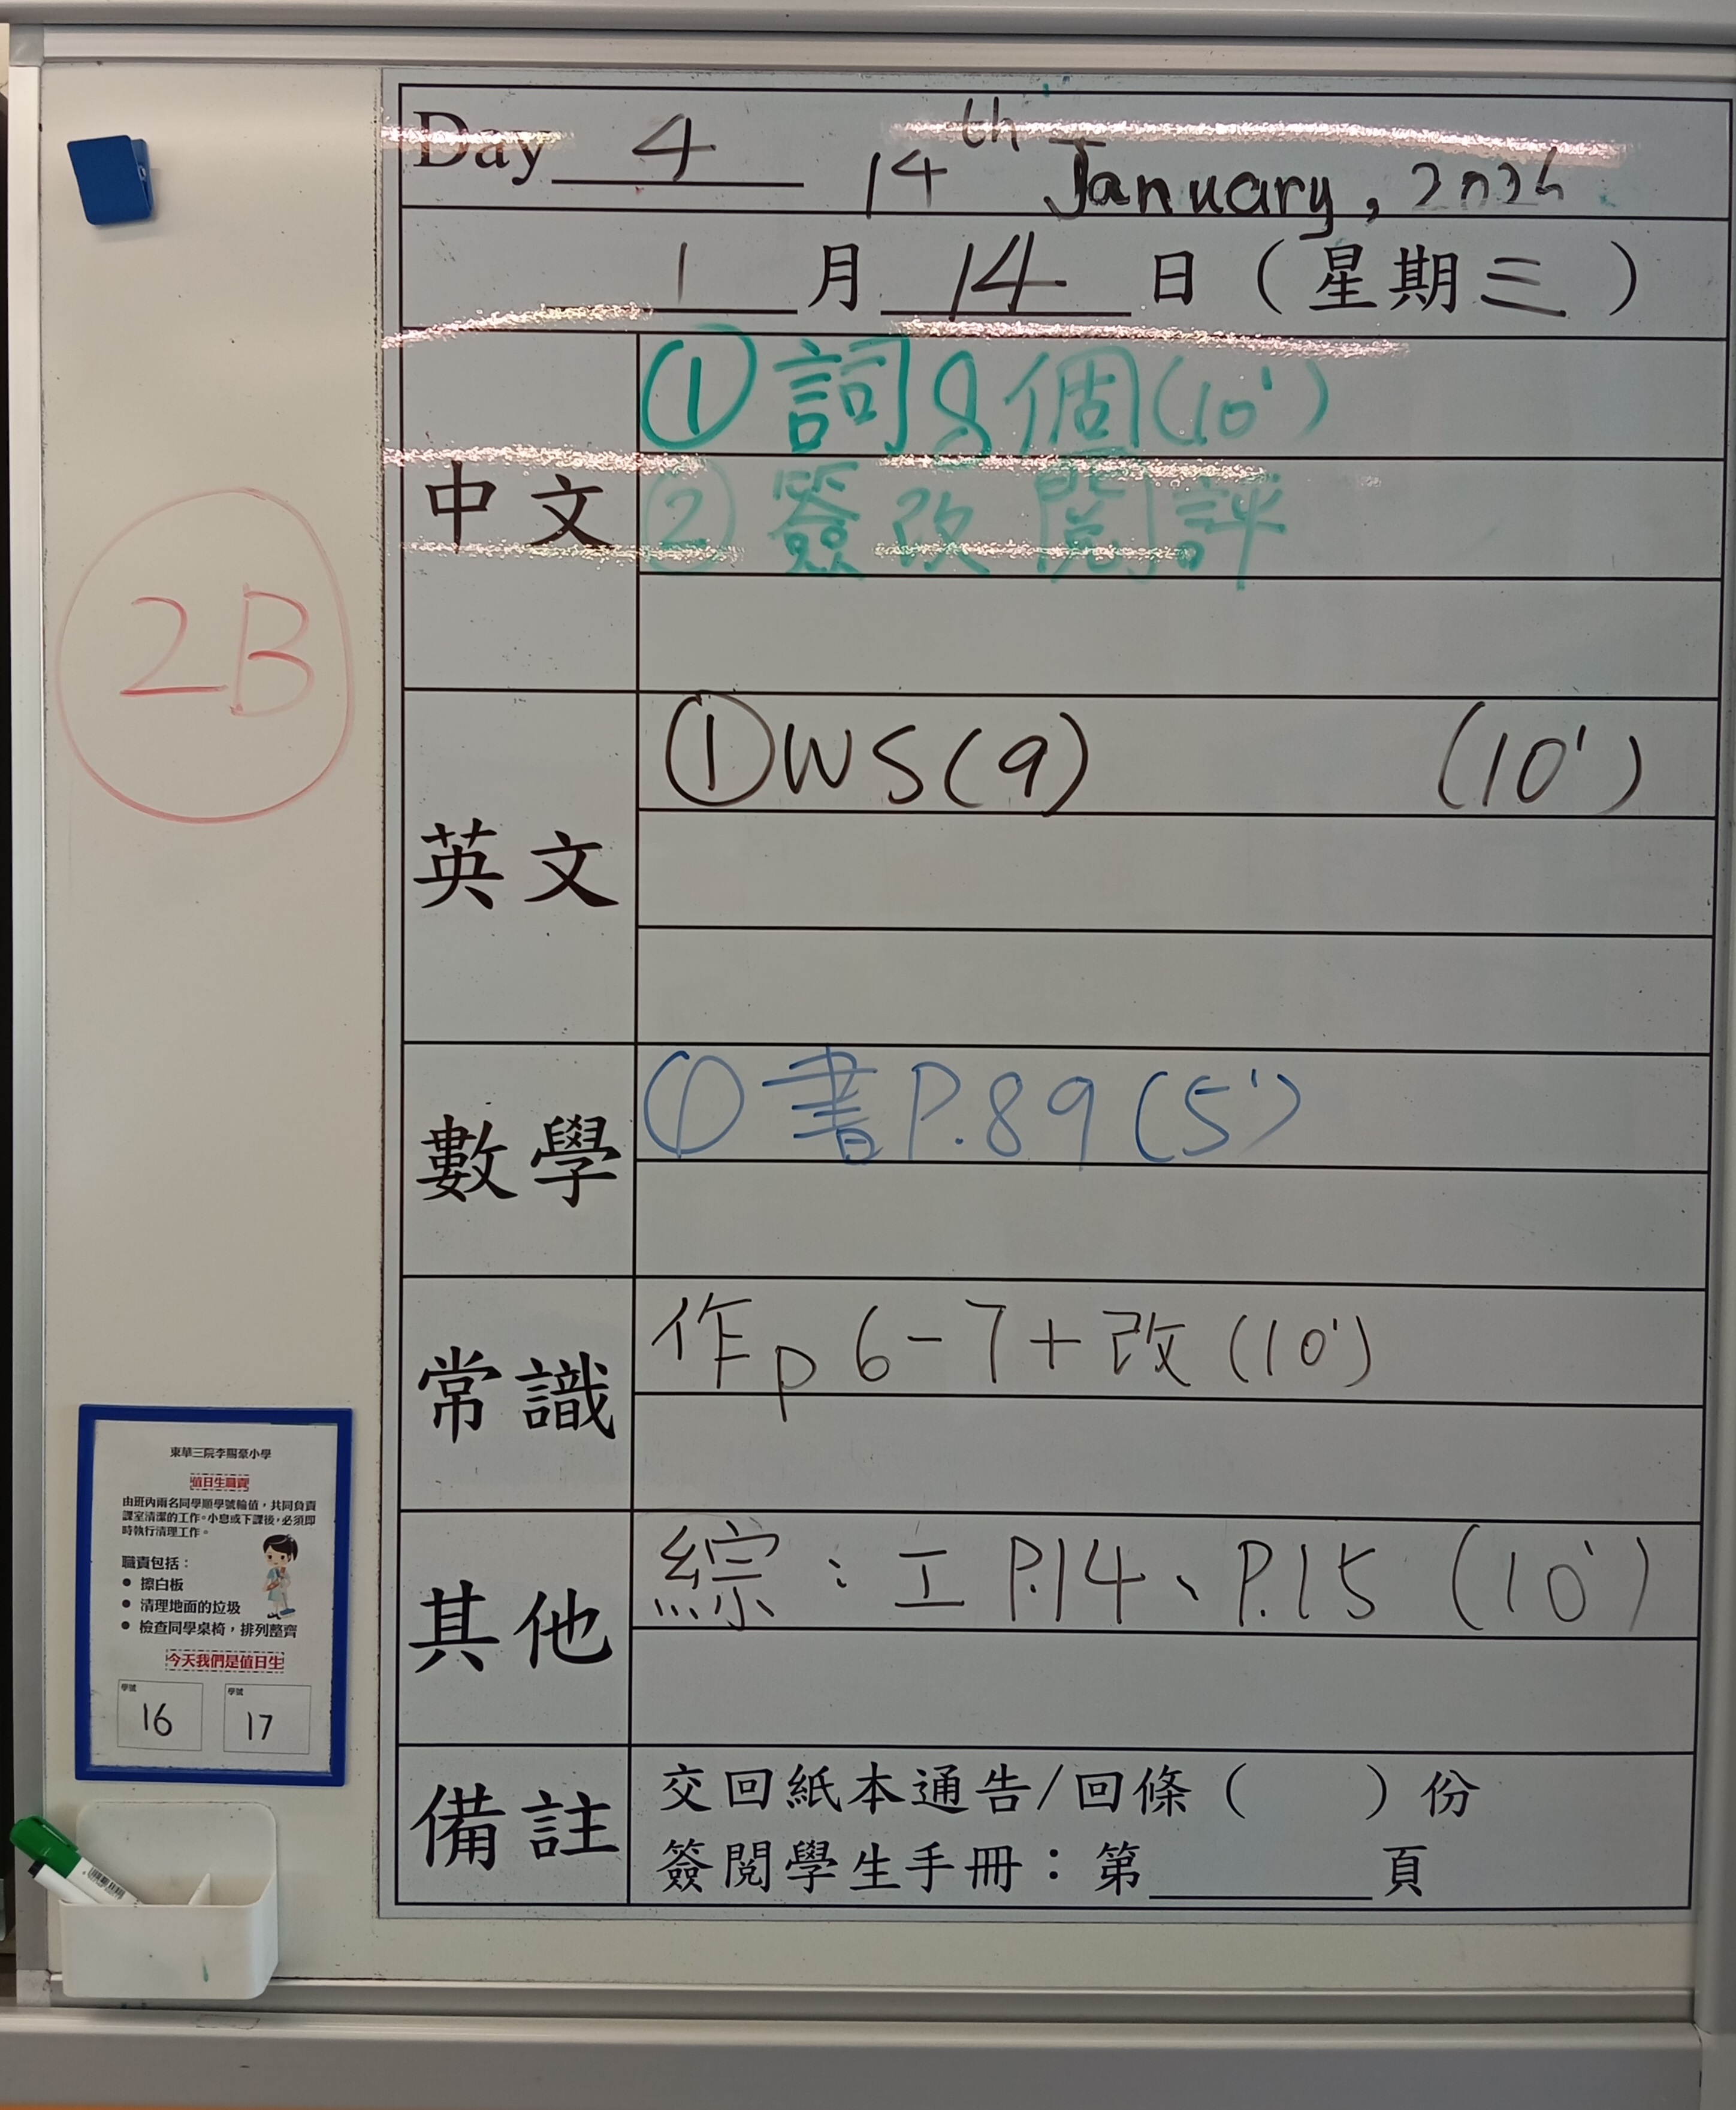 Day 4 14th January, 2026
1 月 14 日 (星期三)
中文
① 詞8個(10')
② 簽改閱評
2B
英文
① WS(9) (10')
數學
① 書P.89(5')
常識
作p6-7+改(10')
其他
綜:工P.14、P.15 (10')
備註
交回紙本通告/回條( )份
簽閱學生手冊:第____頁
東華三院李賜豪小學
值日生職責
由班內兩名同學順學號輪值,共同負責
課室清潔的工作。小息或下課後,必須即
時執行清理工作。
職責包括:
● 擦白板
● 清理地面的垃圾
● 檢查同學桌椅,排列整齊
今天我們是值日生
學號 學號
16 17